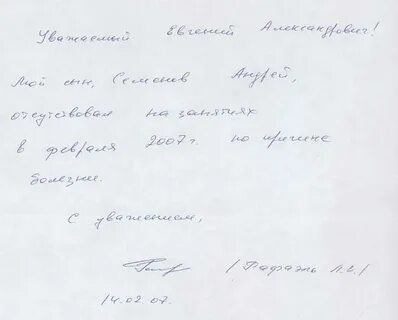 Уважаемый Евгений Александрович!
Мой сын, Семенов Андрей,
отсутствовал на занятиях
в феврале 2007г. по причине
болезни.
С уважением,
14.02.07.